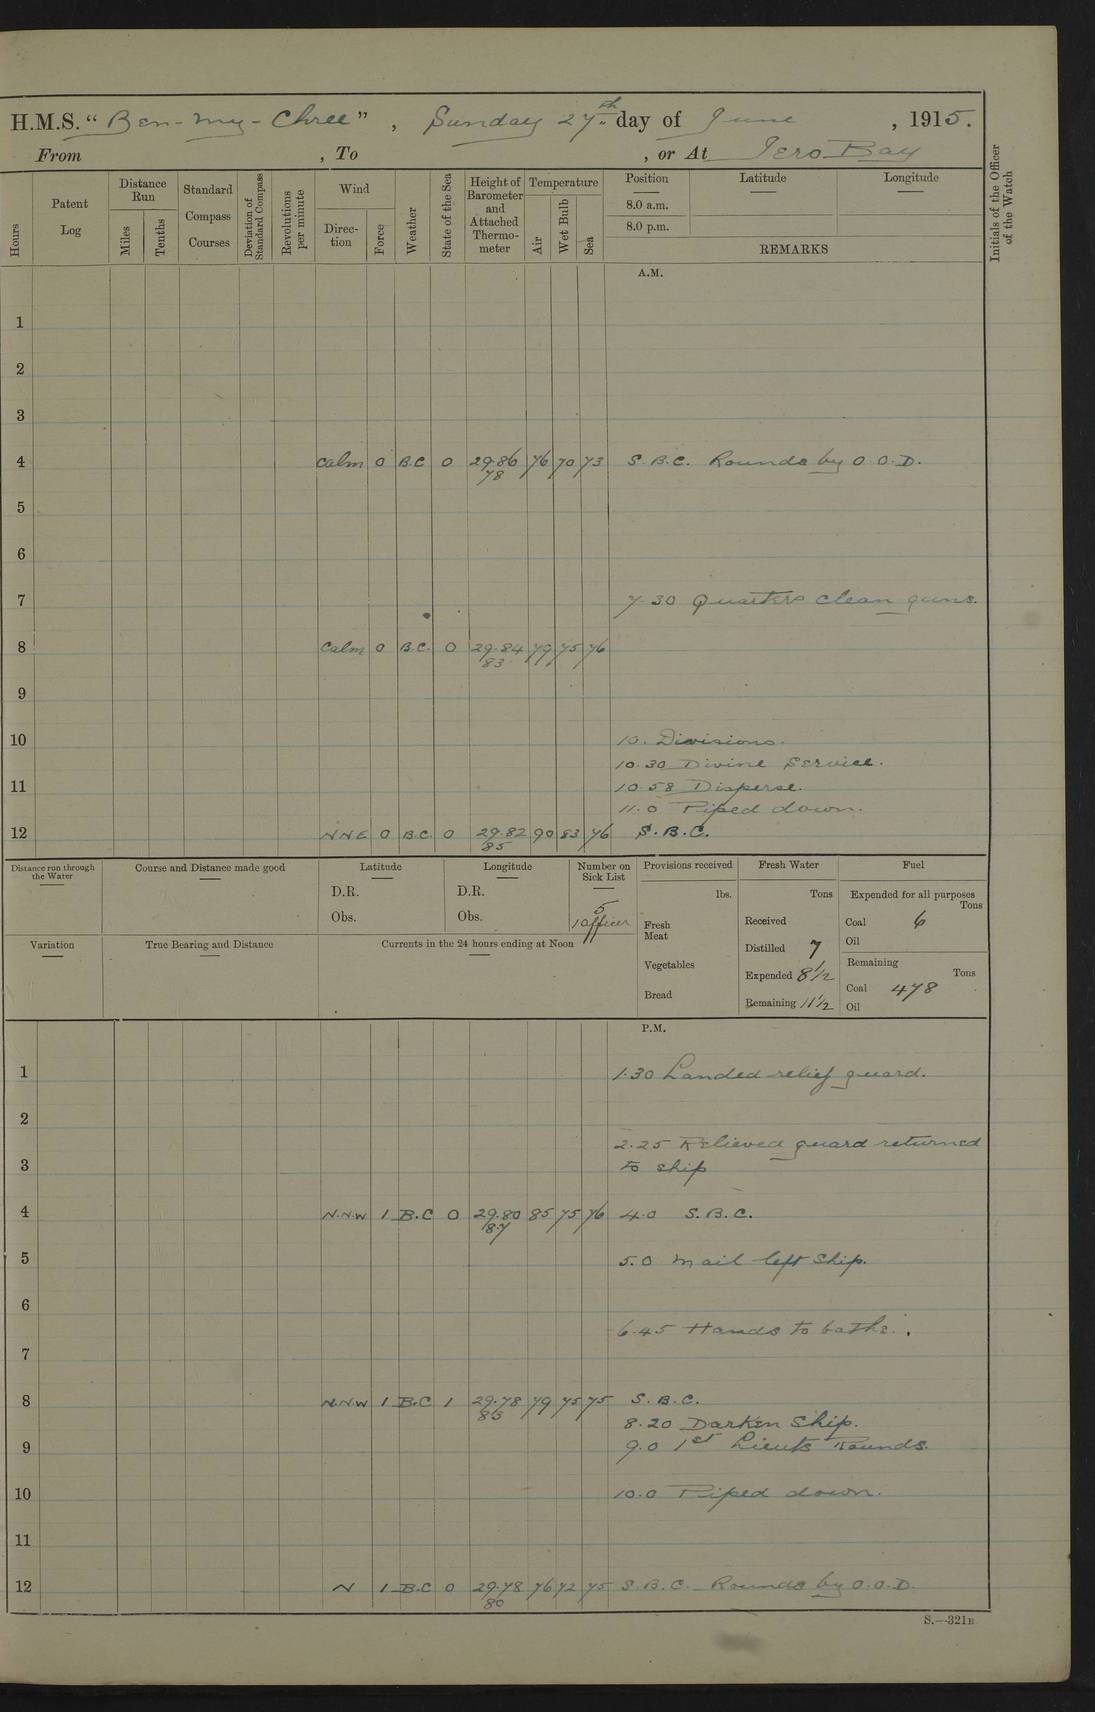 H.M.S. "Ben-my-Chree", Sunday 27th. day of June, 1915.
From , To , or At Iero Bay
Hours
Patent Log
Distance Run
Miles
Tenths
Standard Compass Courses
Deviation of Standard Compass
Revolutions per minute
Wind
Direction
Force
Weather
State of the Sea
Height of Barometer and Attached Thermometer
Temperature
Air
Wet Bulb
Sea
Position
8.0 a.m.
8.0 p.m.
Latitude
Longitude
REMARKS
Initials of the Officer of the Watch
A.M.
1
2
3
4 Calm 0 B.C 0 29.86 76 70 73 S.B.C. Rounds by O.O.D.
78
5
6
7
7.30 Quarters clean guns.
8 Calm 0 B.C. 0 29.84 79 75 76
83
9
10 10. Divisions.
10.30 Divine Service.
11 10.58 Disperse.
11.0 Piped down.
12 NNE 0 B.C. 0 29.82 90 83 76 S.B.C.
85
Distance run through the Water
Course and Distance made good
Latitude
D.R.
Obs.
Longitude
D.R.
Obs.
Number on Sick List
5
1 officer
Provisions received
lbs.
Fresh Meat
Vegetables
Bread
Fresh Water
Tons
Received
Distilled 7
Expended 8½
Remaining 11½
Fuel
Expended for all purposes
Tons
Coal 6
Oil
Remaining
Tons
Coal 478
Oil
Variation
True Bearing and Distance
Currents in the 24 hours ending at Noon
P.M.
1 1.30 Landed relief guard.
2
2.25 Relieved guard returned
3 to ship
4 N.N.W 1 B.C 0 29.80 85 75 76 4.0 S.B.C.
87
5 5.0 Mail left Ship.
6
6.45 Hands to bathe.
7
8 N.N.W 1 B.C 1 29.78 79 75 75 S.B.C.
83
8.20 Darken Ship.
9 9.0 1st Lieuts Rounds.
10 10.0 Piped down.
11
12 N 1 B.C 0 29.78 76 72 75 S.B.C. Rounds by O.O.D.
80
S.—321B